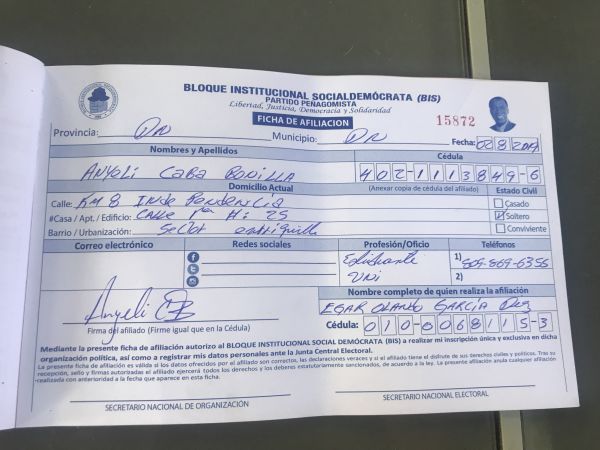 BLOQUE INSTITUCIONAL SOCIALDEMÓCRATA (BIS)
PARTIDO PEÑAGOMISTA
Libertad, Justicia, Democracia y Solidaridad
FICHA DE AFILIACION
15872
Provincia: DN Municipio: DN Fecha: 02 8 2019
Nombres y Apellidos Cédula
ANYELI CABA BONILLA 402-1113849-6
Domicilio Actual (Anexar copia de cédula del afiliado) Estado Civil
Calle: KM 8 Independencia Casado
#Casa / Apt. / Edificio: CALLE 1ra H: 25 Soltero
Barrio / Urbanización: Conviviente
Correo electrónico Redes sociales Profesión/Oficio Teléfonos
Estudiante 1) 809-869-6356
Uni 2)
Nombre completo de quien realiza la afiliación
Anyeli EGAR GARCÍA
Firma del afiliado (Firme igual que en la Cédula) Cédula: 010-0068115-3
Mediante la presente ficha de afiliación autorizo al BLOQUE INSTITUCIONAL SOCIAL DEMÓCRATA (BIS) a realizar mi inscripción única y exclusiva en dicha
organización política, así como a registrar mis datos personales ante la Junta Central Electoral.
La presente ficha de afiliación es válida si los datos ofrecidos por el afiliado son correctos, las declaraciones veraces y si el afiliado tiene el disfrute de sus derechos civiles y políticos. Tras su
recepción, sello y firmas autorizadas el afiliado ejercerá todos los derechos y los deberes estatutariamente sancionados, de acuerdo a la ley. La presente afiliación anula cualquier afiliación
realizada con anterioridad a la fecha que aparece en esta ficha.
SECRETARIO NACIONAL DE ORGANIZACIÓN SECRETARIO NACIONAL ELECTORAL